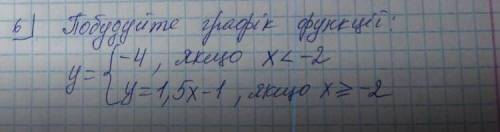 6) Побудуйте графік функції:
y = { -4, якщо x < -2
y = 1,5x - 1, якщо x ≥ -2